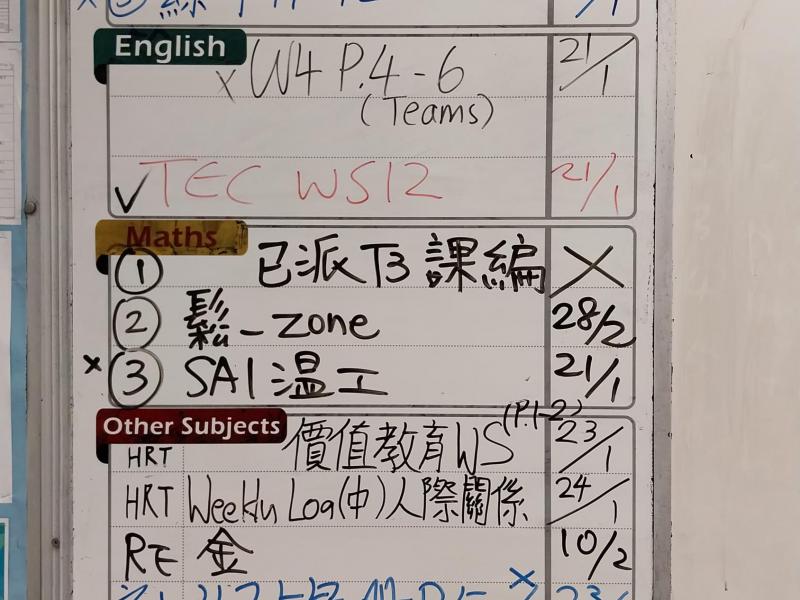 English
x W4 P.4-6 21/1
(Teams)
✓ TEC WS12 21/1
Maths
① 已派T3 課編 X
② 鬆_zone 28/2
x ③ SA1 温工 21/1
Other Subjects
HRT 價值教育WS (P.1-2) 23/1
HRT Weekly Log(中)人際關係 24/1
RE 金 10/2